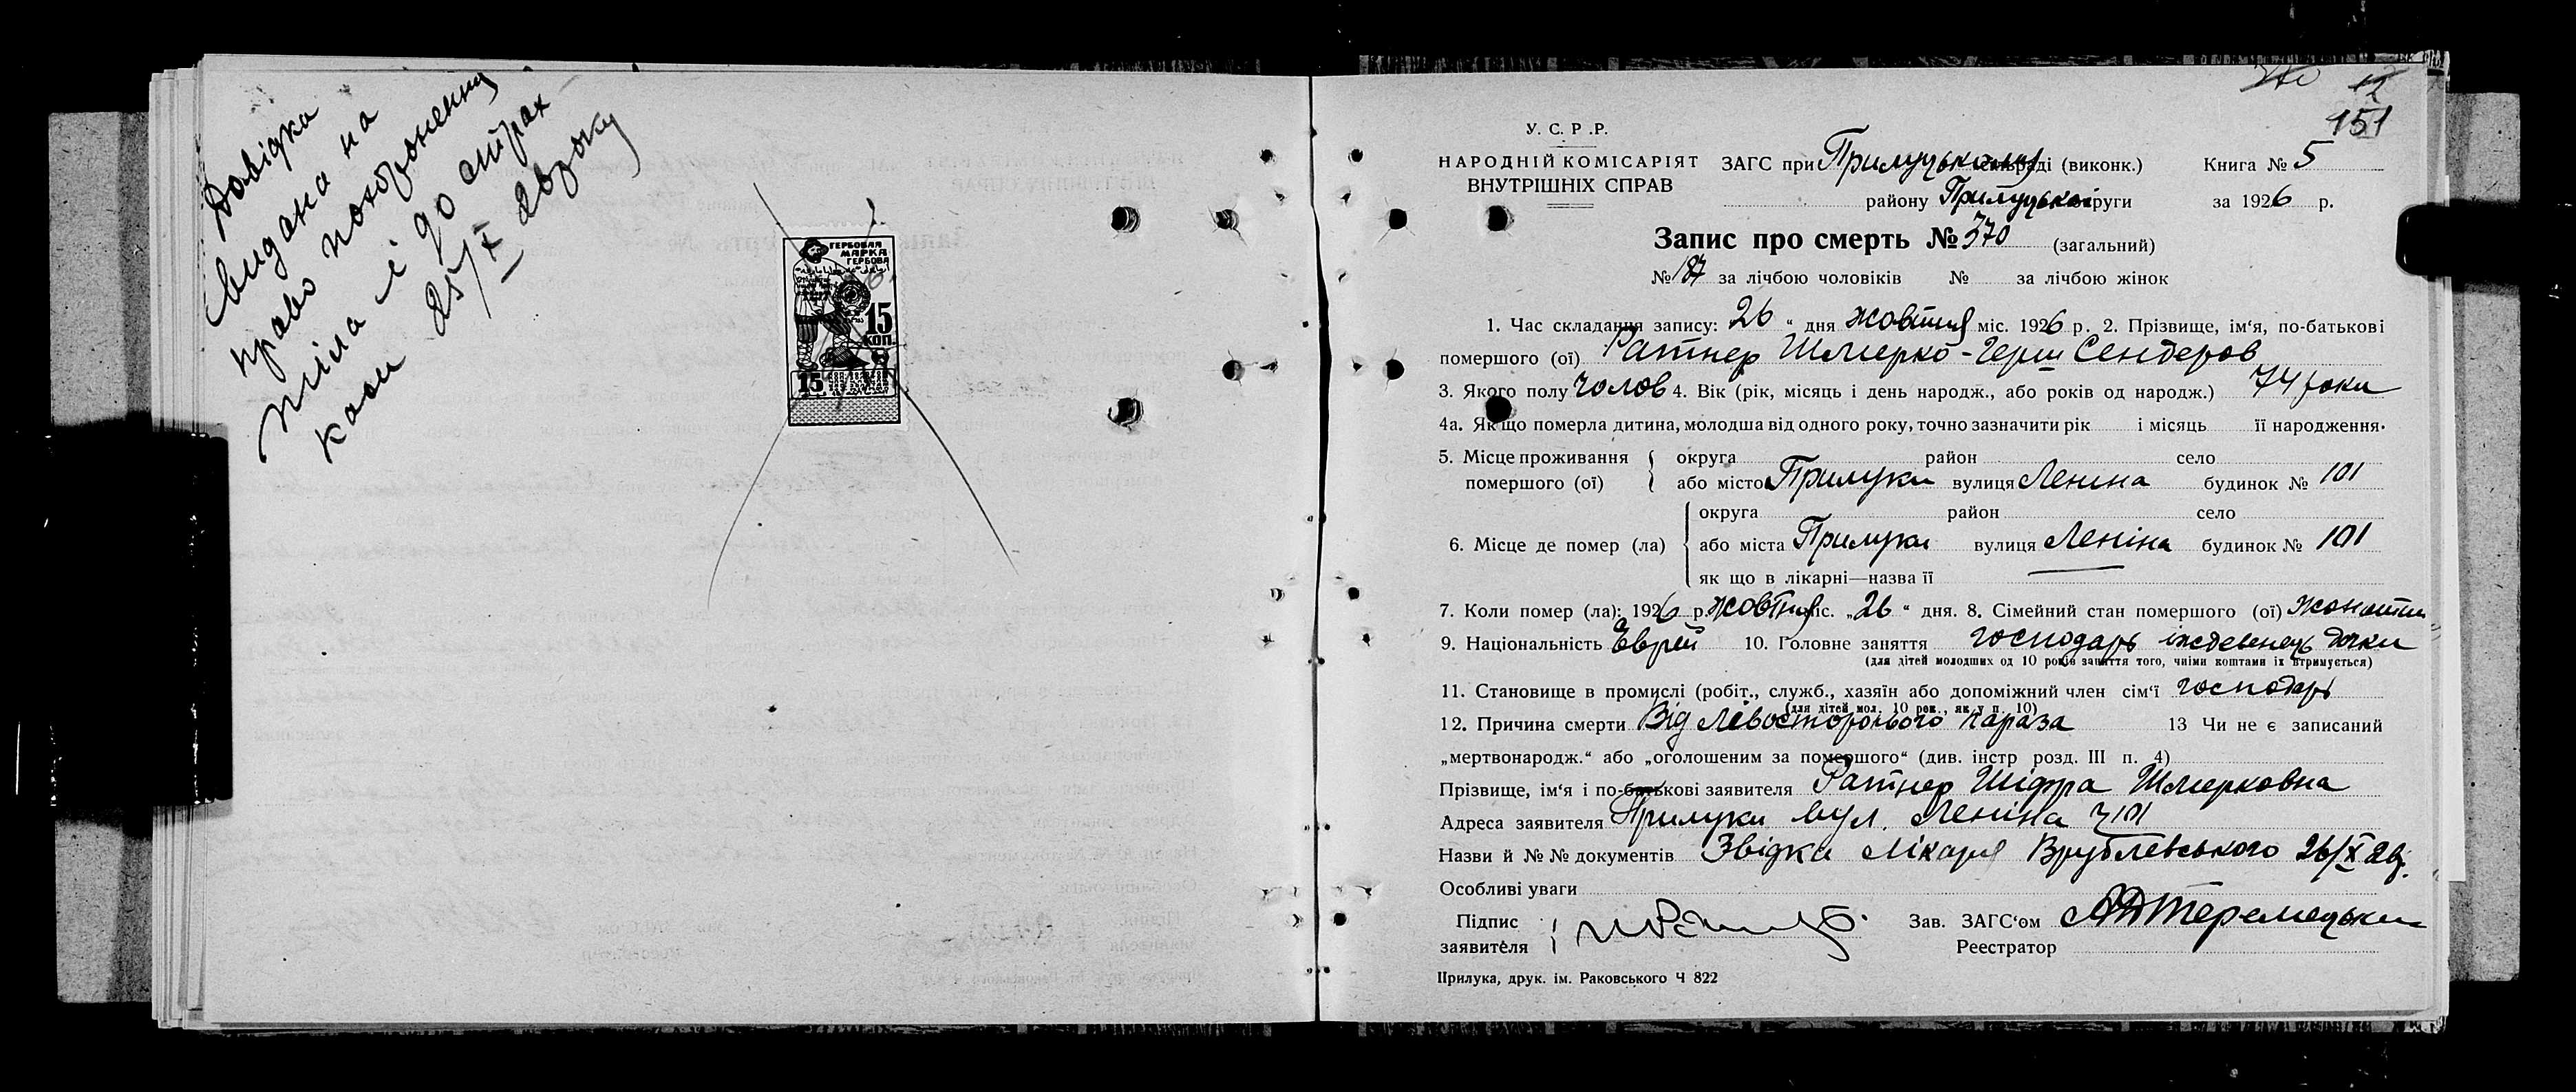 Довідка
видана на
право похоронення
тіла і до страх
каси 25/X 26 року
ГЕРБОВАЯ
МАРКА
ГЕРБОВА
15
КОП.
15
12
151
У. С. Р .Р.
НАРОДНІЙ КОМІСАРІЯТ
ВНУТРІШНІХ СПРАВ
ЗАГС при Прилуцькому раді (виконк.) Книга № 5
району Прилуцької округи за 1926 р.
Запис про смерть № 370 (загальний)
№ 187 за лічбою чоловіків № за лічбою жінок
1. Час складання запису: 26 “ дня жовтня міс. 1926 р. 2. Прізвище, ім‘я, по-батькові
помершого (ої) Ратнер Шмерко-Герш Сендеров
3. Якого полу чолов 4. Вік (рік, місяць і день народж., або років од народж.) 74 роки
4а. Як що померла дитина, молодша від одного року, точно зазначити рік і місяць її народження.
5. Місце проживання округа район село
помершого (ої) або місто Прилуки вулиця Леніна будинок № 101
округа район село
6. Місце де помер (ла) або міста Прилуки вулиця Леніна будинок № 101
як що в лікарні—назва її
7. Коли помер (ла): 1926 р. жовтня міс. „26“ дня. 8. Сімейний стан помершого (ої) жонатий
9. Національність Еврей 10. Головне заняття господарь іждевенець дочки
(для дітей молодших од 10 років заняття того, чиїми коштами їх втримується)
11. Становище в промислі (робіт., служб., хазяїн або допоміжний член сім‘ї господарь
(для дітей мол. 10 рок., як у п. 10)
12. Причина смерти Від лівосторонього параза 13 Чи не є записаний
„мертвонародж.“ або „оголошеним за помершого“ (див. інстр розд. III п. 4)
Прізвище, ім‘я і по-батькові заявителя Ратнер Шіфра Шмерковна
Адреса заявителя Прилуки вул. Леніна ч 101
Назви й №№ документів Звідка лікаря Врублевського 26/X 26 р.
Особливі уваги
Підпис
заявителя
Зав. ЗАГС‘ом
Реестратор
Прилука, друк. ім. Раковського Ч 822